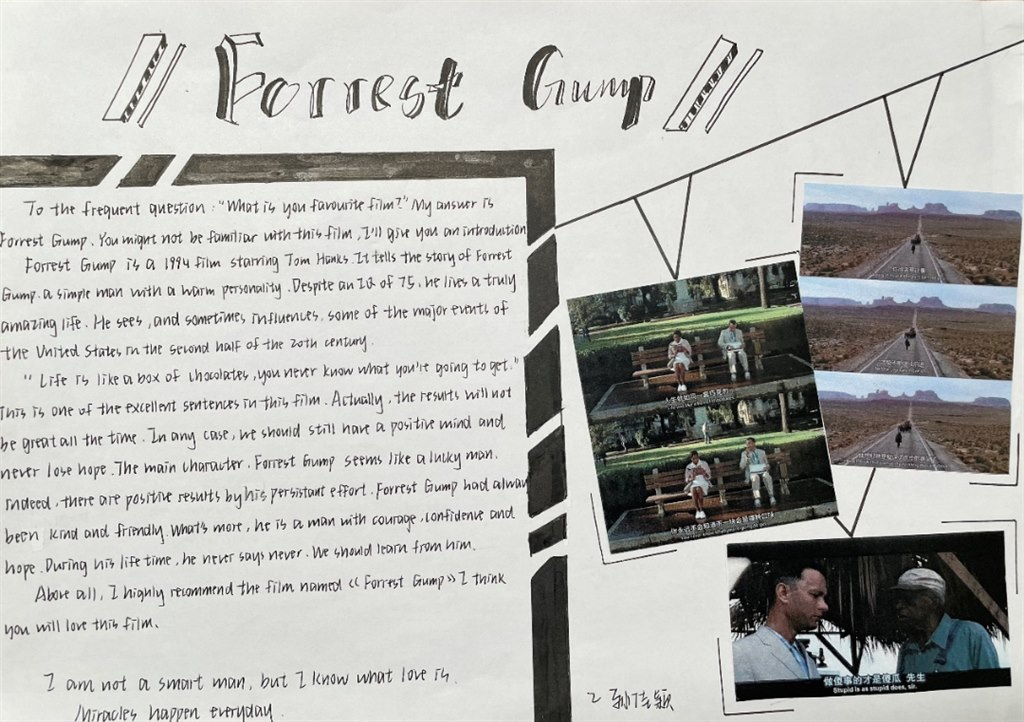 Forrest Gump
To the frequent question: "What is you favourite film?" My answer is
Forrest Gump. You might not be familiar with this film, I'll give you an introduction
Forrest Gump is a 1994 film starring Tom Hanks. It tells the story of Forrest
Gump. a simple man with a warm personality. Despite an IQ of 75, he lives a truly
amazing life. He sees, and sometimes influences, some of the major events of
the United States in the second half of the 20th century.
"Life is like a box of chocolates, you never know what you're going to get."
This is one of the excellent sentences in this film. Actually, the results will not
be great all the time. In any case, we should still have a positive mind and
never lose hope. The main character. Forrest Gump seems like a lucky man.
Indeed, there are positive results by his persistant effort. Forrest Gump had alway
been kind and friendly. What's more, he is a man with courage, confidence and
hope. During his life time, he never says never. We should learn from him.
Above all, I highly recommend the film named 《Forrest Gump》 I think
you will love this film.
I am not a smart man, but I know what love is.
Miracles happen everyday.
人生就如同一盒巧克力
你永远不会知道下一块会是哪种口味
做傻事的才是傻瓜 先生
Stupid is as stupid does, sir.
2